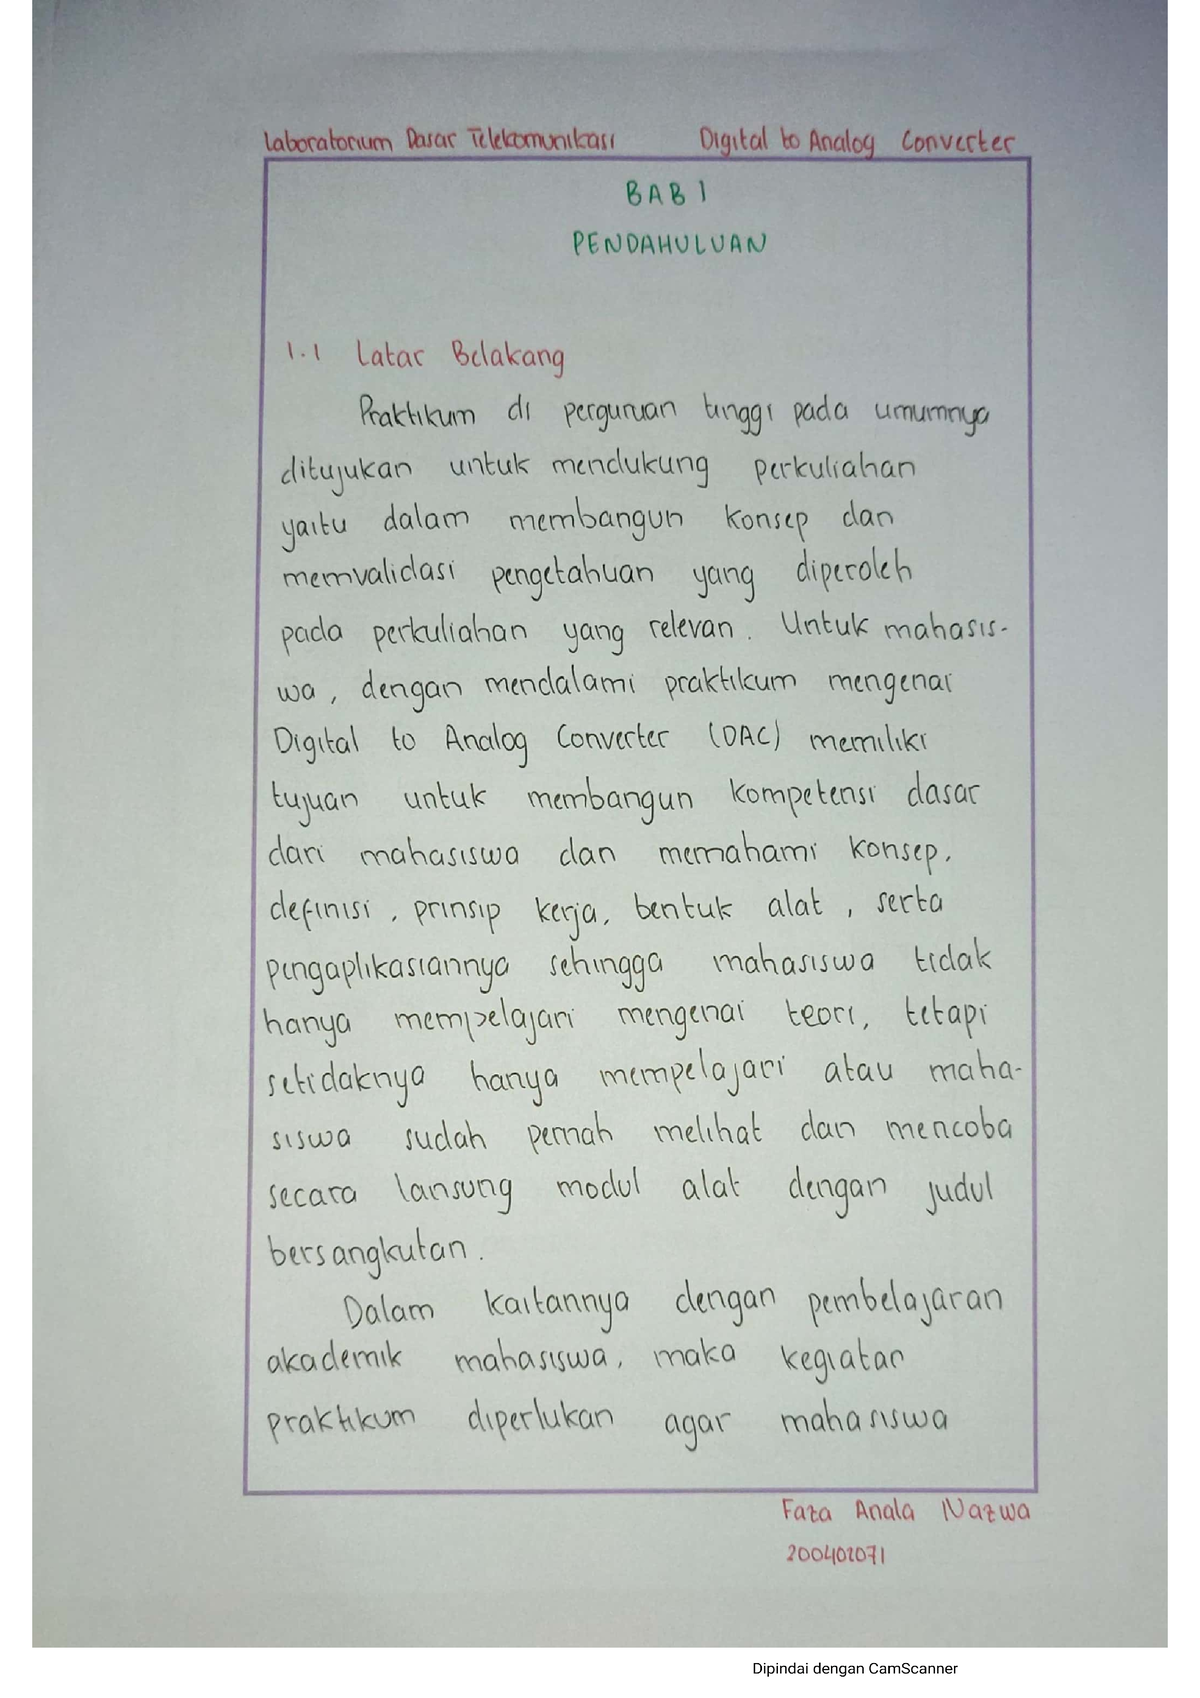 Laboratorium Dasar Telekomunikasi Digital to Analog Converter
BAB I
PENDAHULUAN
1.1 Latar Belakang
Praktikum di perguruan tinggi pada umumnya
ditujukan untuk mendukung perkuliahan
yaitu dalam membangun konsep dan
memvalidasi pengetahuan yang diperoleh
pada perkuliahan yang relevan. Untuk mahasis-
wa, dengan mendalami praktikum mengenai
Digital to Analog Converter (DAC) memiliki
tujuan untuk membangun kompetensi dasar
dari mahasiswa dan memahami konsep,
definisi, prinsip kerja, bentuk alat, serta
pengaplikasiannya sehingga mahasiswa tidak
hanya mempelajari mengenai teori, tetapi
setidaknya hanya mempelajari atau maha-
siswa sudah pernah melihat dan mencoba
secara lansung modul alat dengan judul
bersangkutan.
Dalam kaitannya dengan pembelajaran
akademik mahasiswa, maka kegiatan
praktikum diperlukan agar mahasiswa
Faza Anala Nazwa
200402071
Dipindai dengan CamScanner